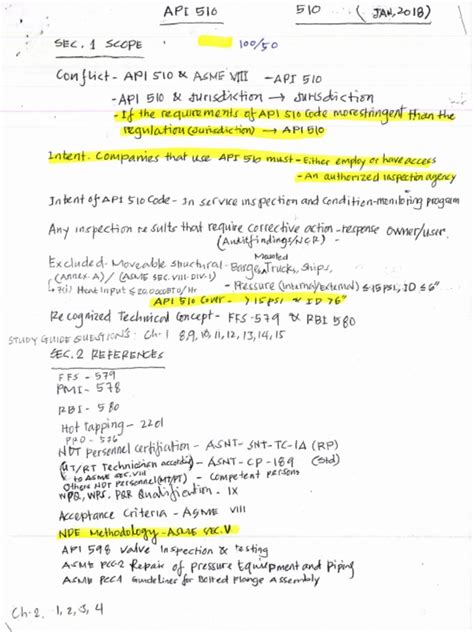 API 510 510 (JAN, 2018)
SEC. 1 SCOPE 100/50
Conflict - API 510 & ASME VIII - API 510
- API 510 & Jurisdiction → Jurisdiction
- If the requirements of API 510 Code more stringent than the
regulation (Jurisdiction) → API 510
Intent. Companies that use API 510 must - Either employ or have access
- An authorized inspection agency
Intent of API 510 Code - In service inspection and Condition-monitoring program
Any inspection results that require corrective action - response owner/user.
(Audit findings/NCR)
Excluded - Moveable structural - Barges, Trucks, Ships,
Mounted
(Annex A) / (ASME SEC. VIII. DIV-1) - Pressure (Internal/External) ≤ 15 psi, ID ≤ 6"
Heat Input ≤ 20,000 BTU/Hr
API 510 Cover - > 15 psi & ID > 6"
Recognized Technical Concept - FFS-579 & RBI 580
STUDY GUIDE QUESTIONS: Ch-1 8,9,10,11,12,13,14,15
SEC. 2 REFERENCES
FFS - 579
PMI - 578
RBI - 580
Hot Tapping - 2201
PRD - 576
NDT Personnel Certification - ASNT - SNT-TC-1A (RP)
(UT/RT Technician according - ASNT - CP-189 (Std)
to ASME SEC. VIII
Others NDT Personnel (MT/PT) - Competent persons
WPQ, WPS, PQR Qualification - IX
Acceptance Criteria - ASME VIII
NDE Methodology - ASME SEC. V
API 598 Valve Inspection & Testing
ASME PCC-2 Repair of Pressure Equipment and Piping
ASME PCC-1 Guidelines for Bolted Flange Assembly
Ch-2. 1, 2, 3, 4